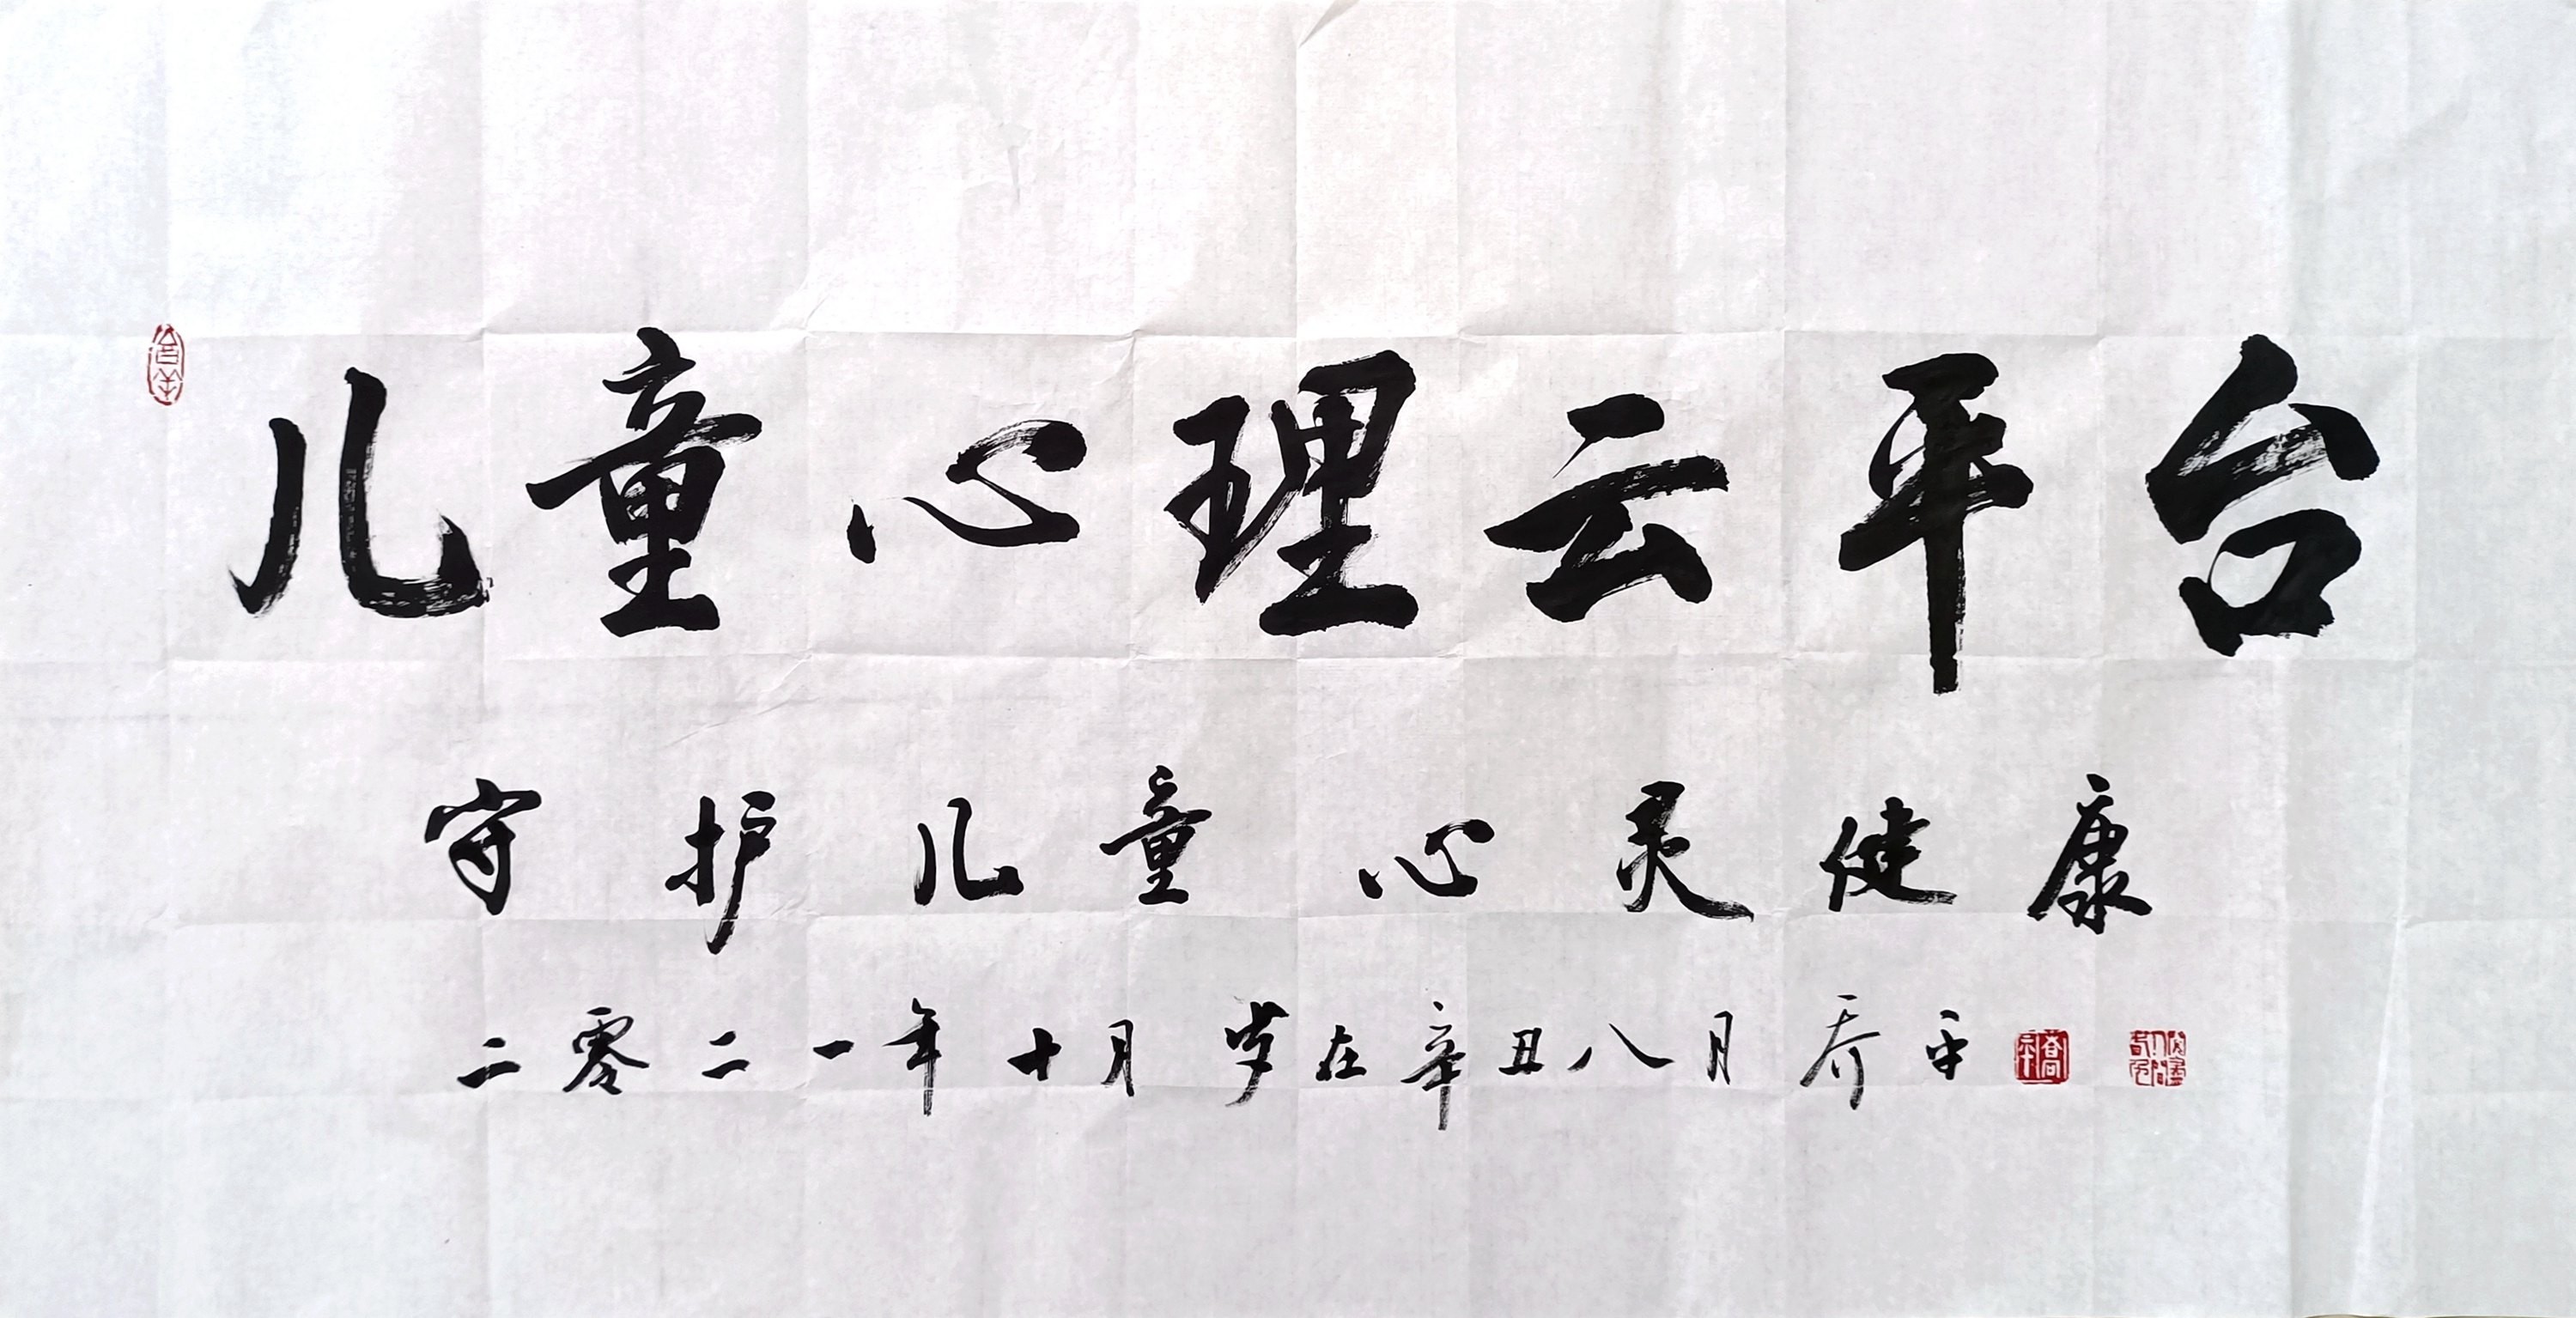 儿童心理云平台
守护儿童心灵健康
二零二一年十月 岁在辛丑八月 乔平